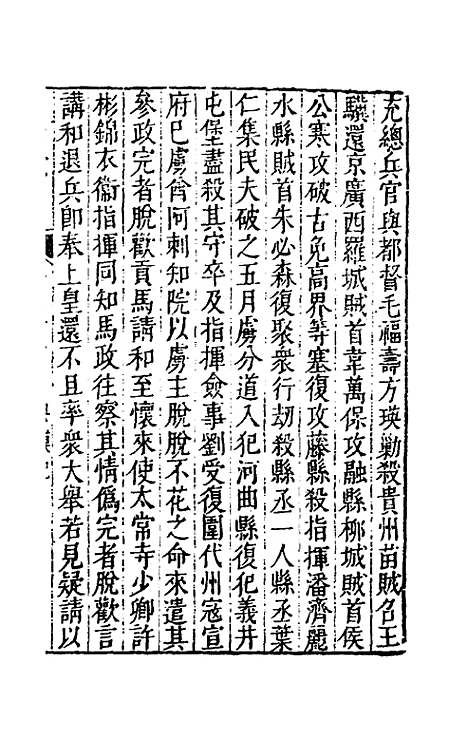 充總兵官與都督毛福壽方瑛勦殺貴州苗賊召王
驥還京廣西羅城賊首韋萬保攻融縣柳城賊首侯
公寒攻破古免高界等塞復攻藤縣殺指揮潘濟麗
水縣賊首朱必森復聚衆行劫殺縣丞一人縣丞葉
仁集民夫破之五月虜分道入犯河曲縣復犯義井
屯堡盡殺其守卒及指揮僉事劉受復圍代州寇宣
府巳虜酋阿剌知院以虜主脫脫不花之命來遣其
參政完者脫歡貢馬請和至懷來使太常寺少卿許
彬錦衣衞指揮同知馬政往察其情僞完者脫歡言
講和退兵卽奉上皇還不且率衆大舉若見疑請以